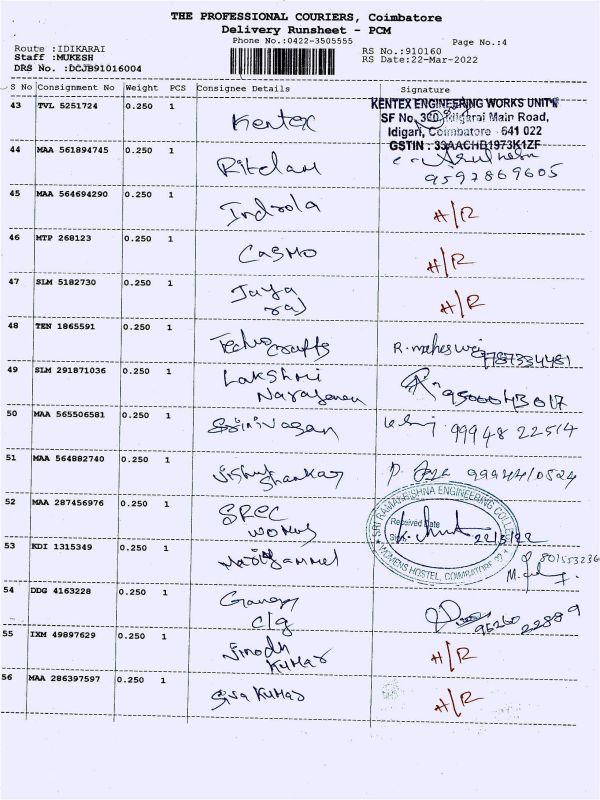 THE PROFESSIONAL COURIERS, Coimbatore
Delivery Runsheet - PCM
Phone No.:0422-3505555
Page No.:4
Route :IDIKARAI
RS No.:910160
Staff :MUKESH
RS Date:22-Mar-2022
DRS No. :DCJB91016004
S No Consignment No Weight PCS Consignee Details Signature
43 TVL 5251724 0.250 1 Kentex
KENTEX ENGINEERING WORKS UNIT
SF No. 320, Idigarai Main Road,
Idigari, Coimbatore - 641 022
GSTIN : 33AACHD1973K1ZF
44 MAA 561894745 0.250 1
9597869605
45 MAA 564694290 0.250 1 Indrola H/R
46 MTP 268123 0.250 1 CASMO H/R
47 SLM 5182730 0.250 1 Jaya H/R
raj
48 TEN 1865591 0.250 1 Techno crafts R. maheswari 9787334481
49 SLM 291871036 0.250 1 Lakshmi
Narayanan
50 MAA 565506581 0.250 1 Srinivasan 99948 22514
51 MAA 564882740 0.250 1 9994410524
Shankar
52 MAA 287456976 0.250 1 SREC
womens
SRI RAMAKRISHNA ENGINEERING COLLEGE
Received Date
22/3/22
WOMENS HOSTEL, COIMBATORE - 22
53 KDI 1315349 0.250 1 Mariyammal 801553236
54 DDG 4163228 0.250 1 Ganga
c/g
95260 22889
55 IXM 49897629 0.250 1 Vinodh H/R
Kumar
56 MAA 286397597 0.250 1 Siva Kumar H/R